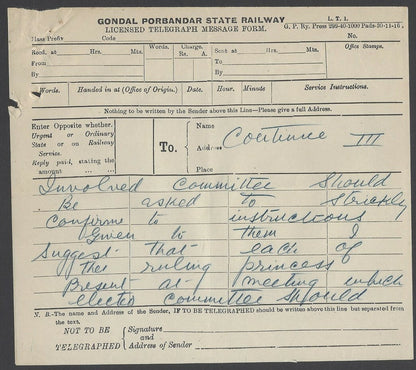 GONDAL PORBANDAR STATE RAILWAY
L. T. 1.
LICENSED TELEGRAPH MESSAGE FORM.
G. P. Ry. Press 299-40-1000 Pads-30-11-15.
Class Prefix Code No. Office Stamps.
Recd. at Hrs. Mts. Words. Charge. Sent at Hrs. Mts.
Rs. A.
From To
By By
Words. Handed in at (Office of Origin.) Date. Hour. Minute. Service Instructions.
Nothing to be written by the Sender above this Line—Please give a full Address.
Enter Opposite whether.
Urgent or Ordinary
State or on Railway
Service.
Reply paid, stating the
amount
To.
Name
Address Continue III
Place
Involved committee should
Be asked to strickly
Confirme to instructions
Given to them I
Suggest that each of
the ruling princess
Present at meeting which
elected committee should
N. B.—The name and Address of the Sender, IF TO BE TELEGRAPHED should be written above this line but separated from
the text.
NOT TO BE
TELEGRAPHED
Signature
and
Address of Sender